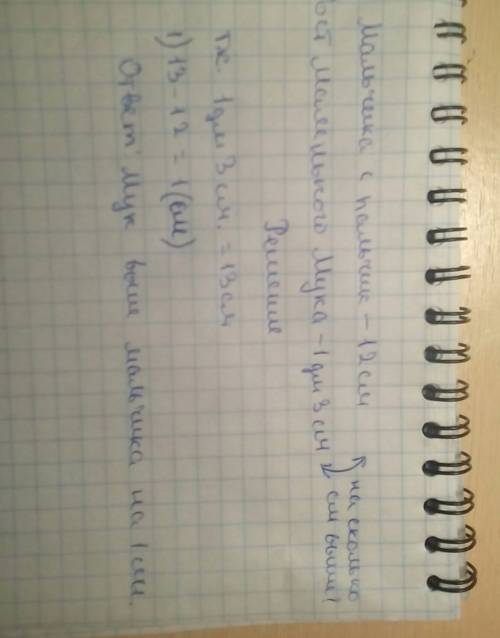 Мальчика с пальчик - 12 см
на сколько
Маленького Мука - 1 дм 3 см
см выше?
Решение
т.к. 1 дм 3 см. = 13 см
1) 13 - 12 = 1 (см)
Ответ: Мук выше мальчика на 1 см.